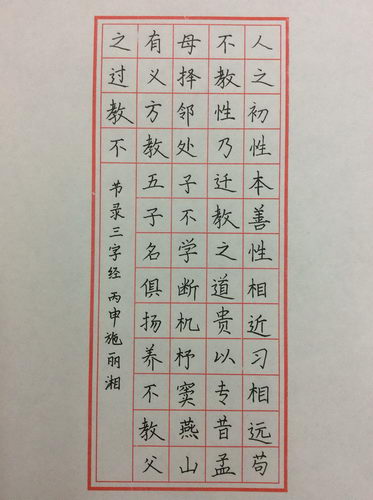 人之初性本善性相近习相远苟
不教性乃迁教之道贵以专昔孟
母择邻处子不学断机杼窦燕山
有义方教五子名俱扬养不教父
之过教不
节录三字经 丙申施丽湘